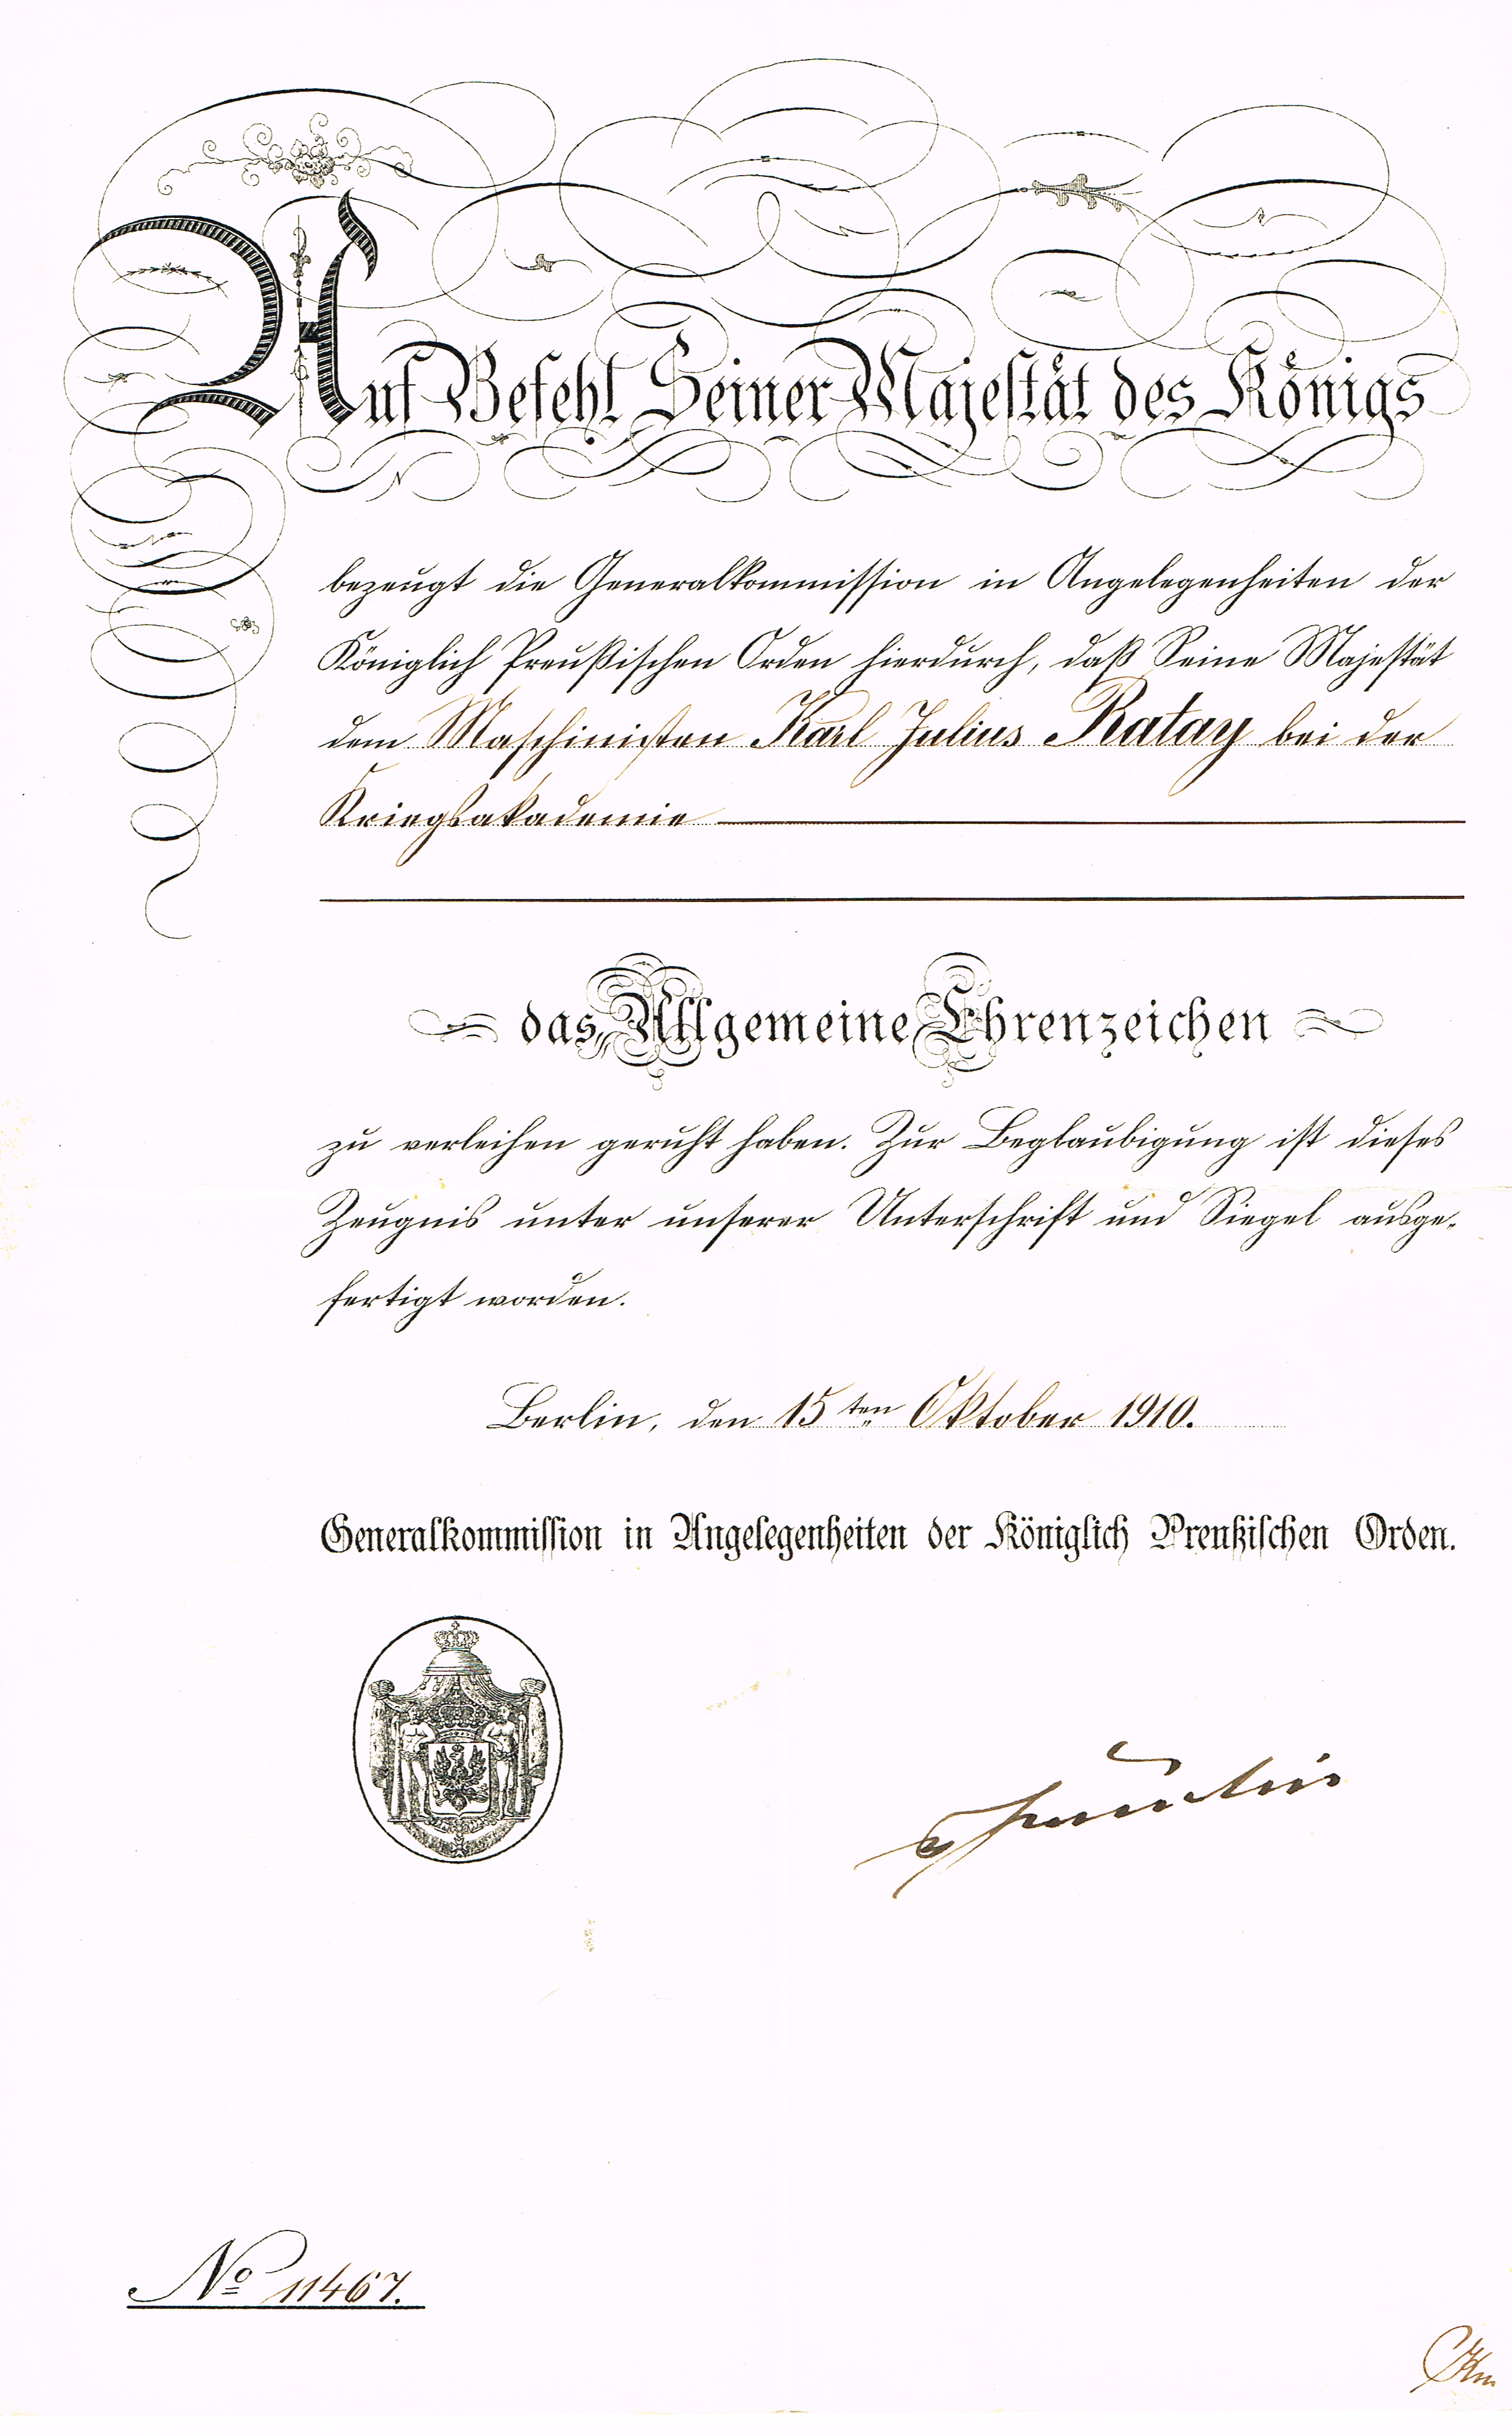 Auf Befehl Seiner Majestät des Königs
bezeugt die Generalkommission in Angelegenheiten der
Königlich Preußischen Orden hierdurch, daß Seine Majestät
dem Maschinisten Karl Julius Ratay bei der
Kriegsakademie
das Allgemeine Ehrenzeichen
zu verleihen geruht haben. Zur Beglaubigung ist dieses
Zeugnis unter unserer Unterschrift und Siegel ausge-
fertigt worden.
Berlin, den 15ten Oktober 1910.
Generalkommission in Angelegenheiten der Königlich Preußischen Orden.
No 11467.